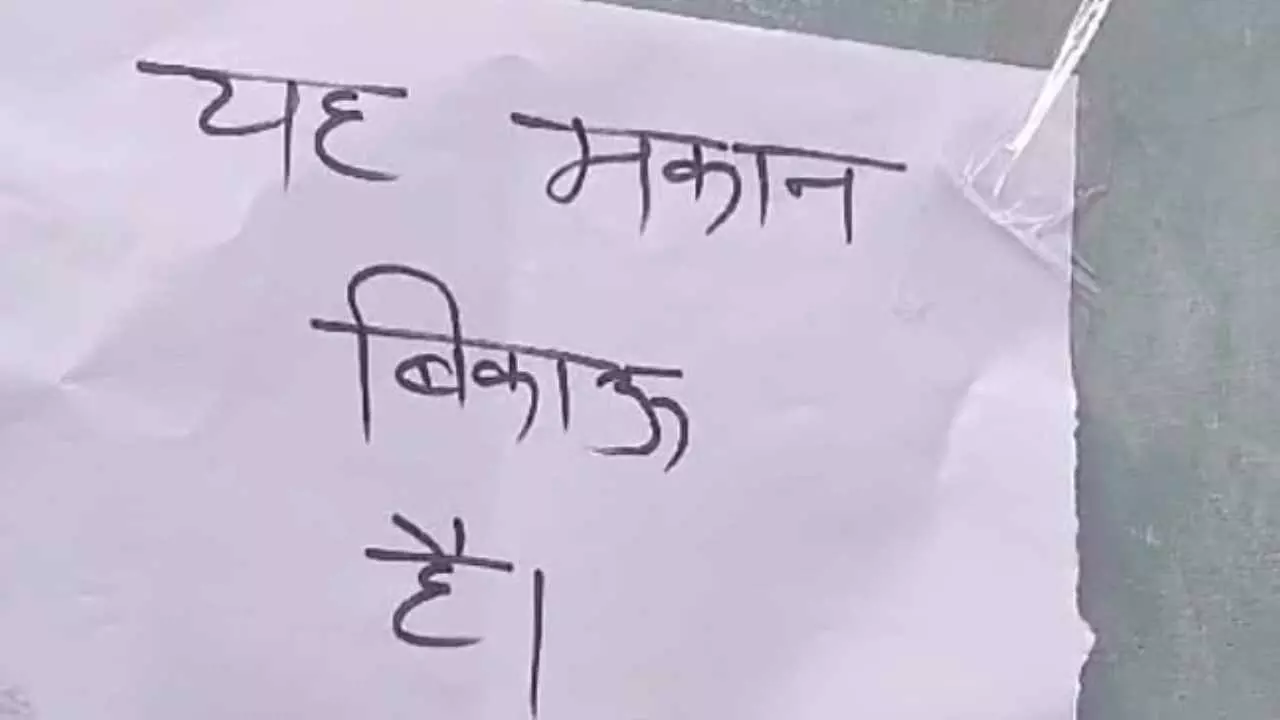 यह मकान
बिकाऊ
है।